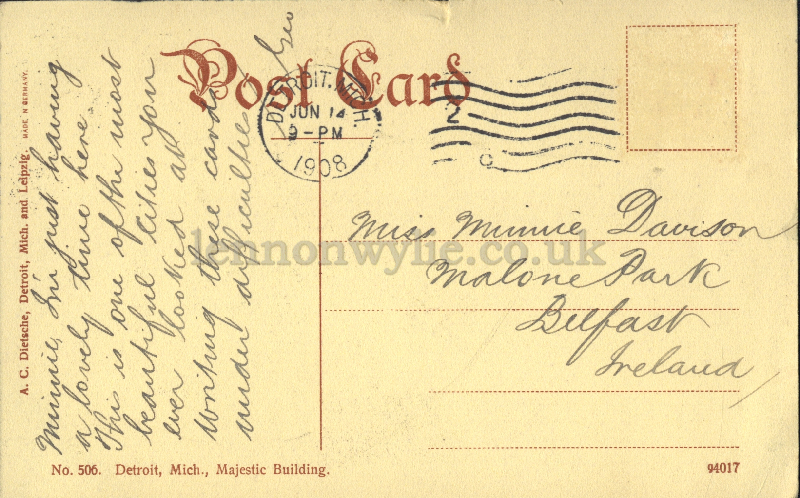 Post Card
DETROIT, MICH.
JUN 14
9-PM
1908
2
Minnie, I'm just having
a lovely time here.
This is one of the most
beautiful cities you
ever looked at
Writing these cards
under difficulties
Geo
Miss Minnie Davison
Malone Park
Belfast
Ireland
lennonwylie.co.uk
A. C. Dietsche, Detroit, Mich. and Leipzig. MADE IN GERMANY.
No. 506. Detroit, Mich., Majestic Building.
94017